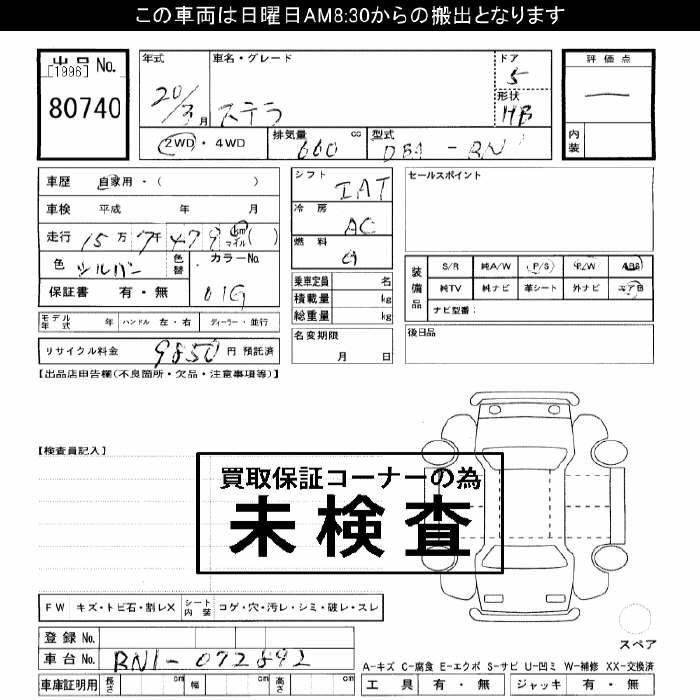 この車両は日曜日AM8:30からの搬出となります
出品 No.
[1996]
80740
年式
20/3 月
車名・グレード
ステラ
ドア
5
形状
HB
評価点
内装
2WD・4WD
排気量
660 cc
型式
DBA - RN1
車歴 自家用・( )
車検 平成 年 月
走行 15万7千479 km マイル ( )
色 シルバー
色替
カラーNo.
01G
保証書 有・無
モデル年式 年 ハンドル 左・右 ディーラー・並行
リサイクル料金 9850 円 預託済
シフト
IAT
冷房
AC
燃料
G
乗車定員 名
積載量 kg
総重量 kg
名変期限
月 日
セールスポイント
装備品
S/R 純A/W P/S P/W ABS
純TV 純ナビ 革シート 外ナビ エアB
ナビ型番:
後日品
【出品店申告欄(不良箇所・欠品・注意事項等)】
【検査員記入】
買取保証コーナーの為
未検査
FW キズ・トビ石・割レX シート内装 コゲ・穴・汚レ・シミ・破レ・スレ
登録 No.
車台 No. RN1-072892
車庫証明用 長さ cm 幅 cm 高さ cm
スペア
A-キズ C-腐食 E-エクボ S-サビ U-凹ミ W-補修 XX-交換済
工具 有・無 ジャッキ 有・無